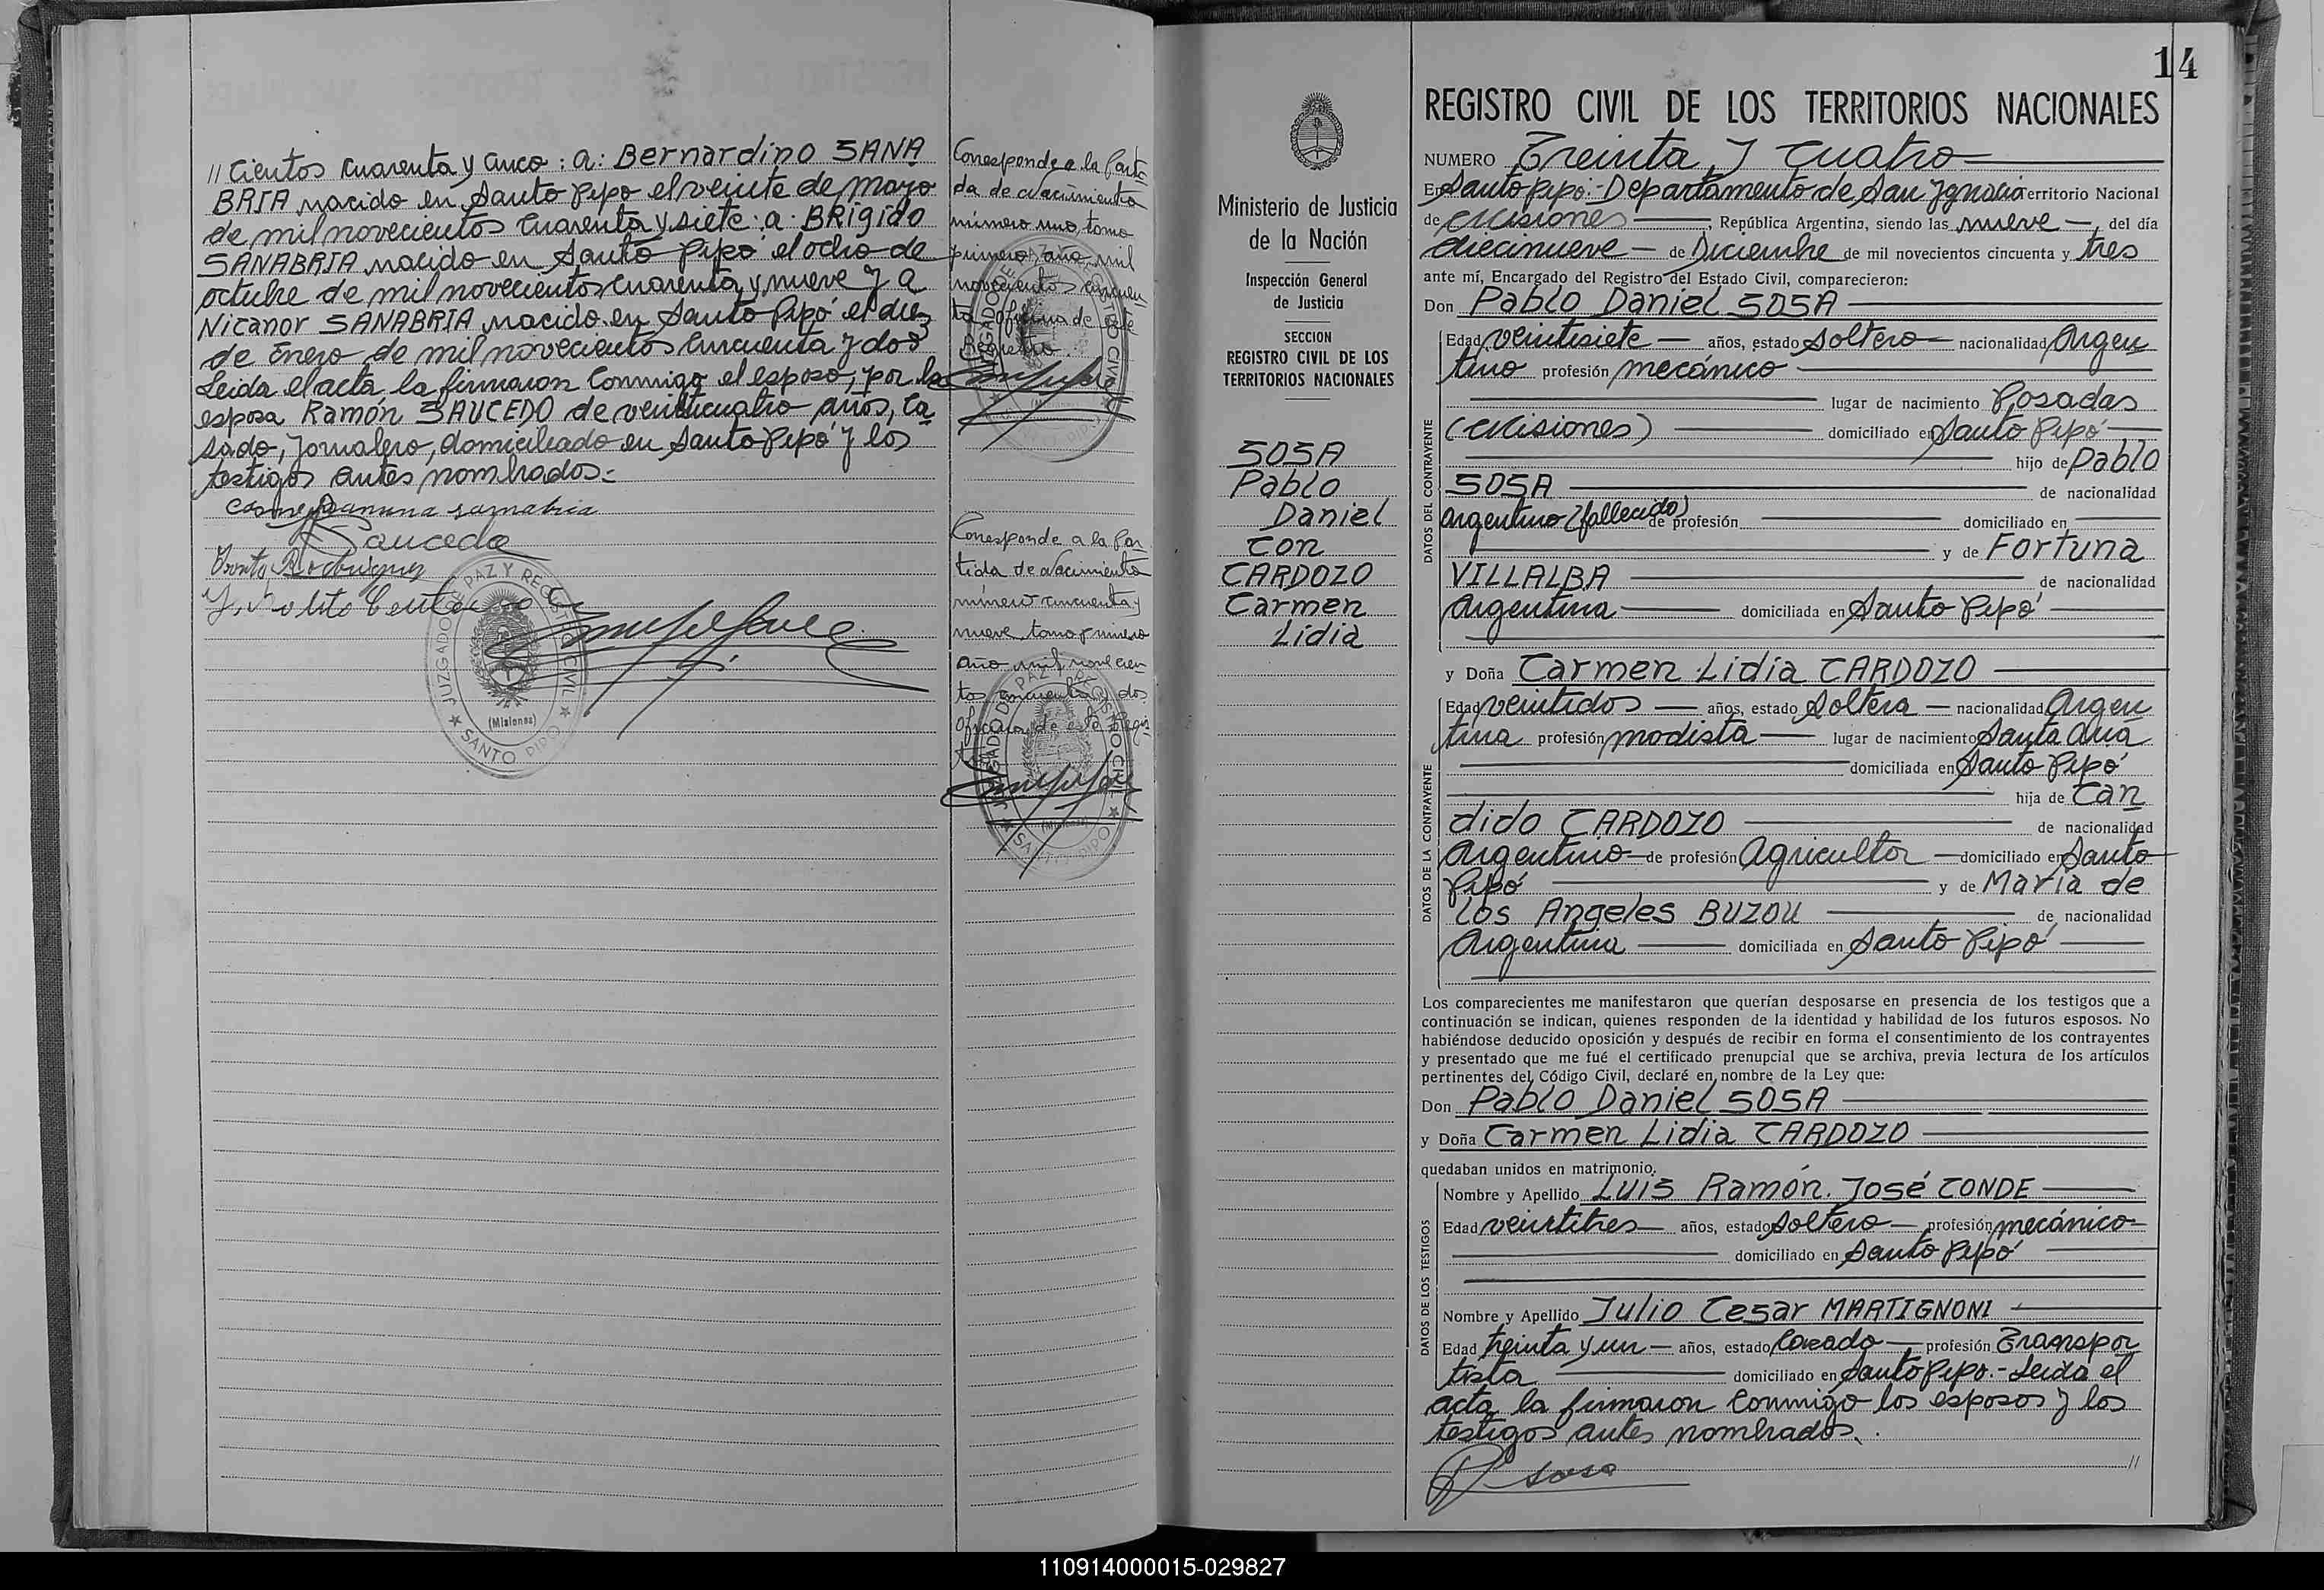 // cientos cuarenta y cinco: a: Bernardino SANA
BRIA nacido en Santo Pipó el veinte de mayo
de mil novecientos cuarenta y siete: a: BRígido
SANABRIA nacido en Santo Pipó el ocho de
octubre de mil novecientos cuarenta y nueve y a
Nicanor SANABRIA nacido en Santo Pipó el diez
de Enero de mil novecientos cincuenta y dos
Leida el acta la firmaron conmigo el esposo, por la
esposa Ramón SAUCEDO de veinticuatro años, ca
sado, jornalero, domiciliado en Santo Pipó y los
testigos antes nombrados.=
Saucedo
JUZGADO DE PAZ Y REGISTRO CIVIL
(Misiones)
SANTO PIPO
Corresponde a la Parti
da de Nacimiento
número uno, tomo
primero, año mil
novecientos cincuen
ta oficina de este
Registro.
Corresponde a la Par
tida de Nacimiento
número cincuenta y
nueve, tomo primero
año mil novecien
tos cincuenta y dos
oficina de este Regis
JUZGADO DE PAZ Y REGISTRO CIVIL
(Misiones)
SANTO PIPO
14
Ministerio de Justicia
de la Nación
Inspección General
de Justicia
SECCION
REGISTRO CIVIL DE LOS
TERRITORIOS NACIONALES
SOSA
Pablo
Daniel
con
CARDOZO
Carmen
Lidia
REGISTRO CIVIL DE LOS TERRITORIOS NACIONALES
NUMERO Treinta y cuatro
En Santo Pipó:- Departamento de San Ignacio Territorio Nacional
de Misiones, República Argentina, siendo las nueve, del día
diecinueve de Diciembre de mil novecientos cincuenta y tres
ante mí, Encargado del Registro del Estado Civil, comparecieron:
Don Pablo Daniel SOSA
DATOS DEL CONTRAYENTE
Edad veintisiete años, estado Soltero nacionalidad Argen
tino profesión mecánico
lugar de nacimiento Posadas
(Misiones) domiciliado en Santo Pipó
hijo de Pablo
SOSA de nacionalidad
argentino (fallecido) de profesión domiciliado en
y de Fortuna
VILLALBA de nacionalidad
Argentina domiciliada en Santo Pipó
y Doña Carmen Lidia CARDOZO
DATOS DE LA CONTRAYENTE
Edad veintidos años, estado Soltera nacionalidad Argen
tina profesión modista lugar de nacimiento Santa Ana
domiciliada en Santo Pipó
hija de Can
dido CARDOZO de nacionalidad
Argentino de profesión Agricultor domiciliado en Santo
Pipó y de María de
los Angeles BUZOU de nacionalidad
Argentina domiciliada en Santo Pipó
Los comparecientes me manifestaron que querían desposarse en presencia de los testigos que a
continuación se indican, quienes responden de la identidad y habilidad de los futuros esposos. No
habiéndose deducido oposición y después de recibir en forma el consentimiento de los contrayentes
y presentado que me fué el certificado prenupcial que se archiva, previa lectura de los artículos
pertinentes del Código Civil, declaré en nombre de la Ley que:
Don Pablo Daniel SOSA
y Doña Carmen Lidia CARDOZO
quedaban unidos en matrimonio.
DATOS DE LOS TESTIGOS
Nombre y Apellido Luis Ramón José CONDE
Edad veintitres años, estado Soltero profesión mecánico
domiciliado en Santo Pipó
Nombre y Apellido Julio Cesar MARTIGNONI
Edad treinta y un años, estado Casado profesión Transpor
tista domiciliado en Santo Pipó.- Leida el
acta la firmaron conmigo los esposos y los
testigos antes nombrados.
//
P Sosa
110914000015-029827